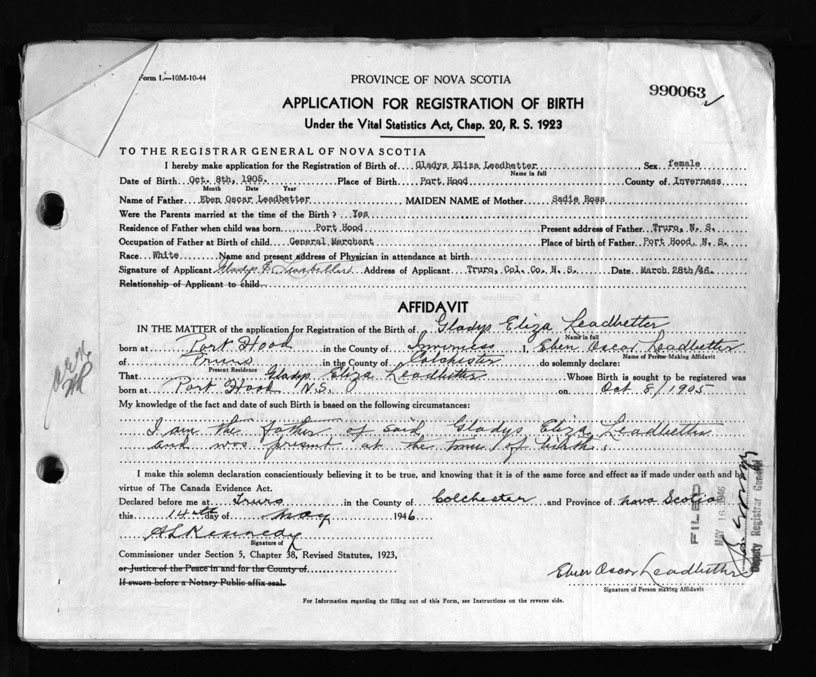 Form 1.—10M-10-44
PROVINCE OF NOVA SCOTIA
990063
APPLICATION FOR REGISTRATION OF BIRTH
Under the Vital Statistics Act, Chap. 20, R. S. 1923
TO THE REGISTRAR GENERAL OF NOVA SCOTIA
I hereby make application for the Registration of Birth of Gladys Eliza Leadbetter Sex female
Name in full
Date of Birth Oct. 8th, 1905. Place of Birth Port Hood County of Inverness
Month Date Year
Name of Father Eben Oscar Leadbetter MAIDEN NAME of Mother Sadie Ross
Were the Parents married at the time of the Birth? Yes
Residence of Father when child was born Port Hood Present address of Father Truro, N. S.
Occupation of Father at Birth of child General Marchant Place of birth of Father Port Hood, N. S.
Race White Name and present address of Physician in attendance at birth
Signature of Applicant Gladys E. Leadbetter Address of Applicant Truro, Col. Co. N. S. Date March 28th/46.
Relationship of Applicant to child
AFFIDAVIT
IN THE MATTER of the application for Registration of the Birth of Gladys Eliza Leadbetter
Name in full
born at Port Hood in the County of Inverness I, Eben Oscar Leadbetter
Name of Person Making Affidavit
of Truro in the County of Colchester do solemnly declare:
Present Residence
That Gladys Eliza Leadbetter Whose Birth is sought to be registered was
born at Port Hood N.S. on Oct 8/1905
My knowledge of the fact and date of such Birth is based on the following circumstances:
I am the father of said Gladys Eliza Leadbetter
and was present at the time of birth.
I make this solemn declaration conscientiously believing it to be true, and knowing that it is of the same force and effect as if made under oath and by
virtue of The Canada Evidence Act.
Declared before me at Truro in the County of Colchester and Province of Nova Scotia
this 14th day of May 1946
A L Kennedy
Signature of
Commissioner under Section 5, Chapter 38, Revised Statutes, 1923,
or Justice of the Peace in and for the County of
If sworn before a Notary Public affix seal.
FILED
MAY 16 1946
Deputy Registrar General
Eben Oscar Leadbetter
Signature of Person making Affidavit
For Information regarding the filling out of this Form, see Instructions on the reverse side.